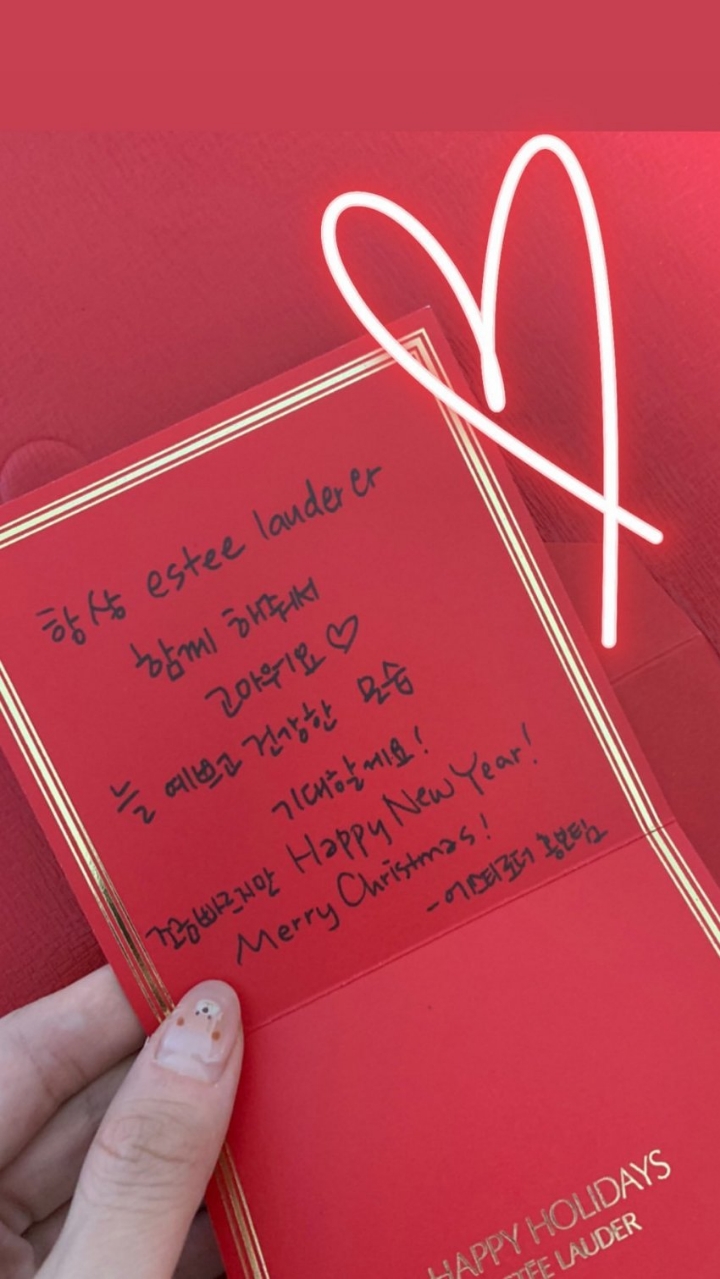 항상 estee lauder er
함께 해줘서
고마워요♡
늘 예쁘고 건강한 모습
기대할게요!
조금빠르지만 Happy New Year!
Merry Christmas!
-에스티로더 홍보팀
HAPPY HOLIDAYS
ESTÉE LAUDER